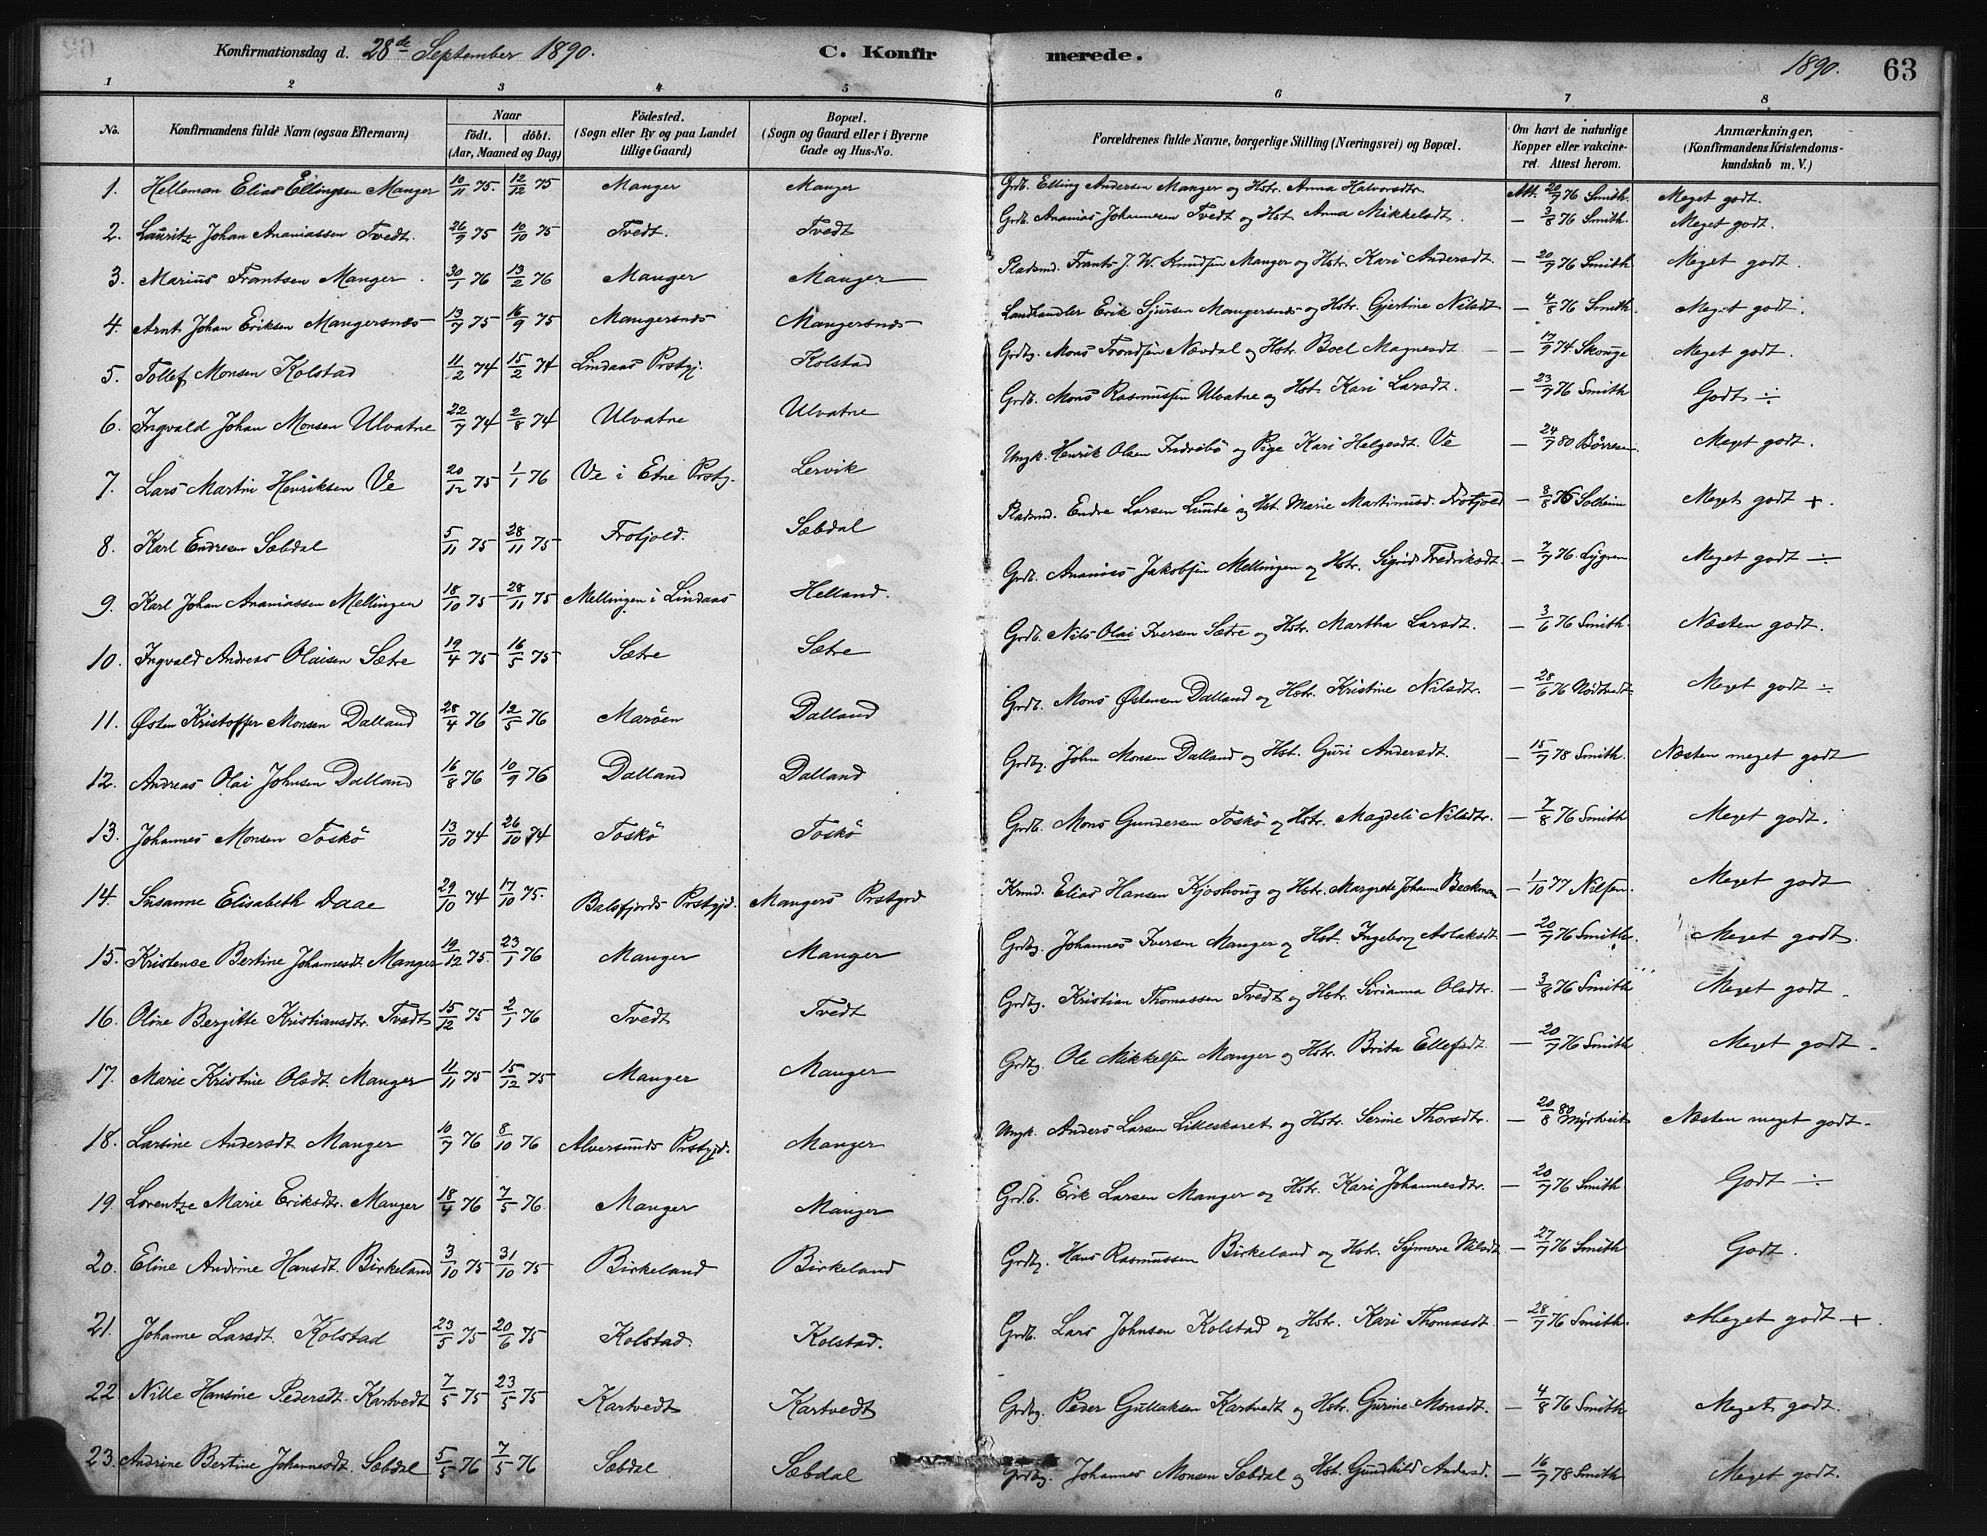 Konfirmationsdag d. 28de September 1890. C. Konfirmerede. 1890. 63
1 2 3 4 5 6 7 8
No. Konfirmandens fulde Navn (ogsaa Efternavn) Naar födt. döbt. (Aar, Maaned og Dag) Födested. (Sogn eller By og paa Landet tillige Gaard) Bopæl. (Sogn og Gaard eller i Byerne Gade og Hus-No. Forældrenes fulde Navne, borgerlige Stilling (Næringsvei) og Bopæl. Om havt de naturlige Kopper eller vakcineret. Attest herom. Anmærkninger. (Konfirmandens Kristendomskundskab m. V.)
1. Helleman Elias Ellingsen Manger 10/11 75. 12/12 75 Manger Manger Grdb. Elling Andersen Manger og Hstr. Anna Halvorsdtr. Att. 20/9 76 Smith. Meget godt.
2. Lauritz Johan Ananiassen Tvedt. 26/9 75 10/10 75 Tvedt. Tvedt Grdb. Ananias Johannesen Tvedt og Hst. Anna Mikkelsdt. — 3/8 76 Smith. Meget godt.
3. Marius Frantsen Manger. 30/1 76 13/2 76 Manger Manger Pladsmd. Frants J. W. Knudsen Manger og Hstr. Kari Andersdt. — 20/9 76 Smith Meget godt.
4. Arnt Johan Eriksen Mangersnæs 13/7 75 16/9 75 Mangersnæs Mangersnæs Landhandler Erik Sjursen Mangersnæs og Hstr. Gjertine Nilsdt. — 4/8 76 Smith. Meget godt.
5. Tollef Monsen Kolstad 11/2 74 15/2 74 Lindaas Prstgj. Kolstad Grdbg. Mons Trondsen Nævdal og Hstr. Boel Magnesdt. — 17/9 74. Skouge Meget godt.
6. Ingvald Johan Monsen Ulvatne 22/7 74 2/8 74 Ulvatne Ulvatne Grdb. Mons Rasmussen Ulvatne og Hst. Kari Larsdt. — 23/7 76 Smith Godt ÷
7. Lars Martin Henriksen Ve 20/12 75 1/1 76 Ve i Etne Prstgj. Lervik Ungk. Henrik Olsen Indrebö og Pige Kari Helgesdt. Ve — 24/7 80 Börresen. Meget godt.
8. Karl Endresen Sæbdal 5/11 75 28/11 75 Frotjold. Sæbdal Pladsmd. Endre Larsen Lunde og Hst. Marie Martinusd. Frotjold — 8/8 76 Solheim Meget godt +.
9. Karl Johan Ananiassen Mellingen 18/10 75 28/11 75 Mellingen i Lindaas Helland. Grdb. Ananias Jakobsen Mellingen og Hstr. Sigrid Fredriksdt. — 7/7 76. Lygren Meget godt ÷
10. Ingvald Andreas Olaisen Sætre 19/4 75 16/5 75 Sætre Sætre Grdb. Nils Olai Iversen Sætre og Hstr. Martha Larsdt. — 3/6 76 Smith. Næsten godt.
11. Østen Kristoffer Monsen Dalland 28/4 76 12/5 76 Maröen Dalland Grdb. Mons Østensen Dalland og Hstr. Kristine Nilsdtr. — 28/6 76 Nödtvedt Meget godt ÷
12. Andreas Olai Johnsen Dalland 16/8 76 10/9 76 Dalland Dalland Grdbg. John Monsen Dalland og Hst. Guri Andersdt. — 15/7 78 Smith. Næsten meget godt
13. Johannes Monsen Toskö 13/10 74 26/10 74 Toskö Toskö Grdb. Mons Gundersen Toskö og Hstr. Magdeli Nilsdtr. — 7/8 76 Smith Meget godt.
14. Susanne Elisabeth Daae 29/10 74 17/10 75. Balsfjords Prstgjd. Mangers Prstgrd Krmd. Elias Hansen Kjoshoug og Hstr. Margrete Johanne Beckman — 1/10 77 Nilsen. Meget godt
15. Kristense Bertine Johannesdt. Manger 19/12 75. 23/1 76 Manger Manger Grdbg. Johannes Iversen Manger og Hst. Ingeborg Aslaksdt — 20/9 76 Smith. Meget godt.
16. Oline Bergitte Kristiansdtr. Tvedt 15/12 75 2/1 76 Tvedt Tvedt Grdbg. Kristian Thomassen Tvedt og Hstr. Sirianna Olsdtr. — 3/8 76 Smith Meget godt.
17. Marie Kristine Olsdt. Manger 11/11 75 15/12 75 Manger Manger Grdbg. Ole Mikkelsen Manger og Hstr. Brita Ellefsdt. — 20/9 76 Smith Meget godt.
18. Larsine Andersdt. Manger 10/9 76 8/10 76 Alversunds Prstgjd. Manger Ungk. Anders Larsen Lilleskaret og Hstr. Serine Thorsdtr. — 20/8 80 Myrtveit Næsten meget godt.
19. Lorentze Marie Eriksdtr. Manger 18/4 76 7/5 76. Manger Manger Grdb. Erik Larsen Manger og Hstr. Kari Johannesdtr. — 20/9 76 Smith Godt ÷
20. Eline Andrine Hansdt. Birkeland 3/10 75 31/10 75 Birkeland Birkeland Grdbg. Hans Rasmussen Birkeland og Hst. Synneve Nilsdt — 27/7 76 Smith Godt.
21. Johanne Larsdt. Kolstad 23/5 75 20/6 75 Kolstad. Kolstad. Grdb. Lars Johnsen Kolstad og Hstr. Kari Thomasdt. — 28/7 76 Smith. Meget godt +.
22. Nille Hansine Pedersdt. Kartvedt 7/5 75 23/5 75 Kartvedt Kartvedt Grdbg. Peder Gullaksen Kartvedt og Hstr. Gurine Monsdt. — 4/8 76 Smith Meget godt.
23. Andrine Bertine Johannesdt. Sæbdal 5/5 76 7/5 76 Sæbdal Sæbdal Grdbg. Johannes Monsen Sæbdal og Hst. Gundhild Andersd. — 16/7 78 Smith Meget godt.